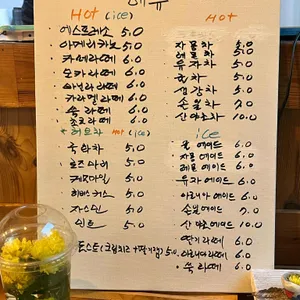 메뉴
Hot (ice)
· 에스프레소 5.0
· 아메리카노 5.0
· 카페라떼 6.0
· 모카라떼 6.0
· 바닐라라떼 6.0
· 카라멜라떼 6.0
· 쑥 라떼 6.0
· 초코라떼 6.0
* 허브차 Hot (ice)
· 국화차 5.0
· 로즈마리 5.0
· 캐모마일 5.0
· 히비커스 5.0
· 자스민 5.0
· 민트 5.0
토스트(크림치즈+딸기잼) 5.0
Hot
· 자몽차 6.0
· 레몬차 6.0
· 유자차 6.0
· 6.0
· 생강차 5.0
· 7.0
· 산 10.0
ice
· 에이드 6.0
· 자몽 에이드 6.0
· 레몬 에이드 6.0
· 유자에이드 6.0
· 에이드 6.0
· 에이드 7.0
· 산 에이드 10.0
· 딸기라떼 6.0
· 라떼 6.0
· 쑥 라떼 6.0